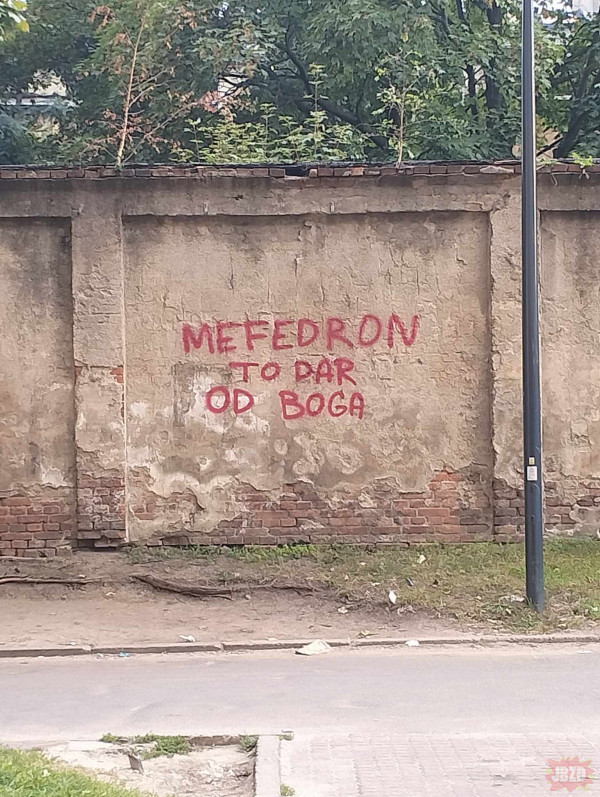 MEFEDRON
TO DAR
OD BOGA
JBZD